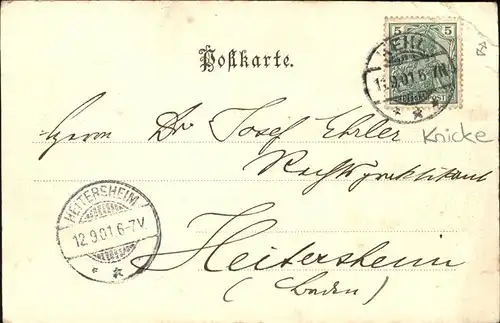 5 5
KEHL
11.9.01 6-7N.
Postkarte.
Herrn Dr Josef Ehrler
Knicke
Rechtspraktikant
HEITERSHEIM
12.9.01 6-7V.
Heitersheim
(Baden)